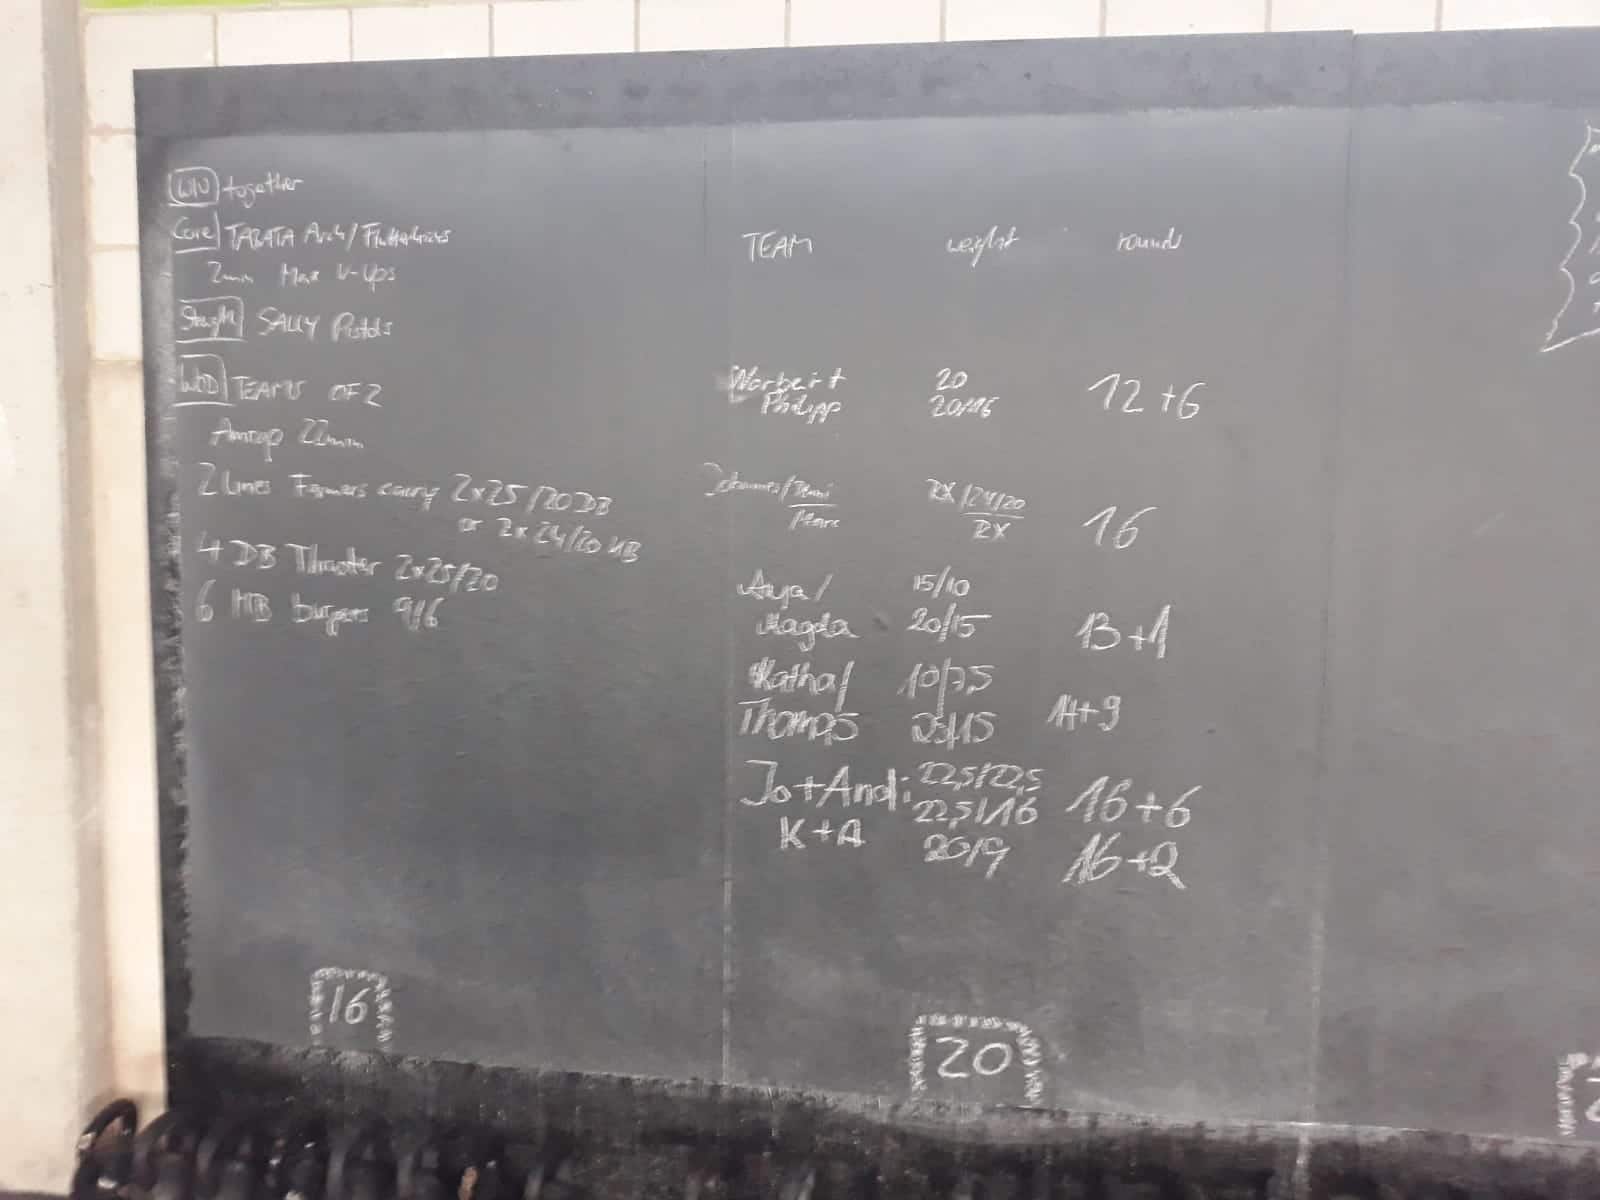 WU together
Core TABATA Arch/Flutterkicks
2min Max V-Ups
Strength SALLY Pistols
WOD TEAMS OF 2
Amrap 22min
2 Lines Farmers carry 2x25/20 DB
or 2x24/20 KB
4 DB Thruster 2x25/20
6 MB burpees 9/6
TEAM weight round
Norbert + 20 12+6
Philipp 20/16
Johannes/ RX/24/20 16
Marc RX
Anja/ 15/10
Magda 20/15 13+1
Katha/ 10/7,5
Thomas 14+9
Jo+Andi: 22,5/22,5 16+6
22,5/16
K+A 20/9 16+2
16
20